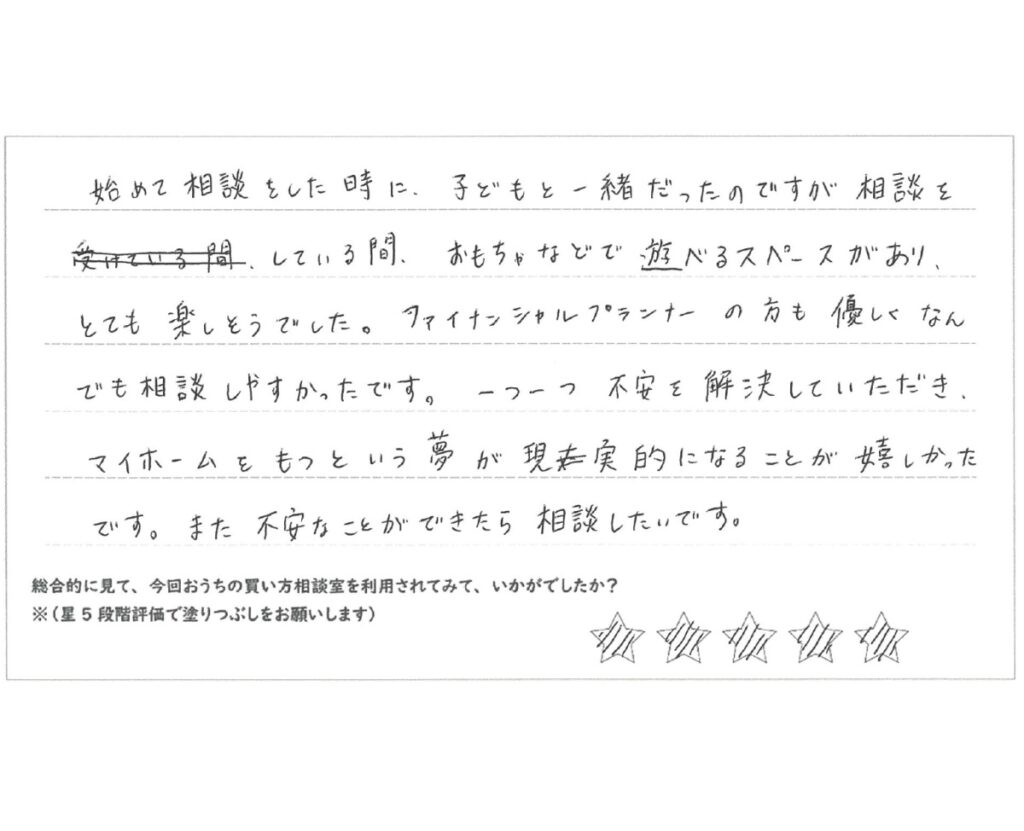 始めて相談をした時に、子どもと一緒だったのですが相談を
受けている間、している間、おもちゃなどで遊べるスペースがあり、
とても楽しそうでした。ファイナンシャルプランナーの方も優しくなん
でも相談しやすかったです。一つ一つ不安を解決していただき、
マイホームをもつという夢が現実的になることが嬉しかった
です。また不安なことができたら相談したいです。
総合的に見て、今回おうちの買い方相談室を利用されてみて、いかがでしたか?
※(星5段階評価で塗りつぶしをお願いします)